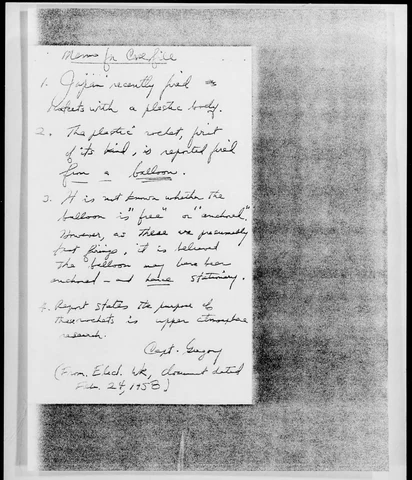 Memo for Casefile
1. Japan recently fired
rockets with a plastic body.
2. The plastic rocket, first
of its kind, is reported fired
from a balloon.
3. It is not known whether the
balloon is "free" or "anchored".
However, as these are presumably
first firings, it is believed
the balloon may have been
anchored — and hence stationary.
4. Report states the purpose of
these rockets is upper atmosphere
research.
Capt. Gregory
(From Elect. Wk, document dated
Feb. 24, 1958)